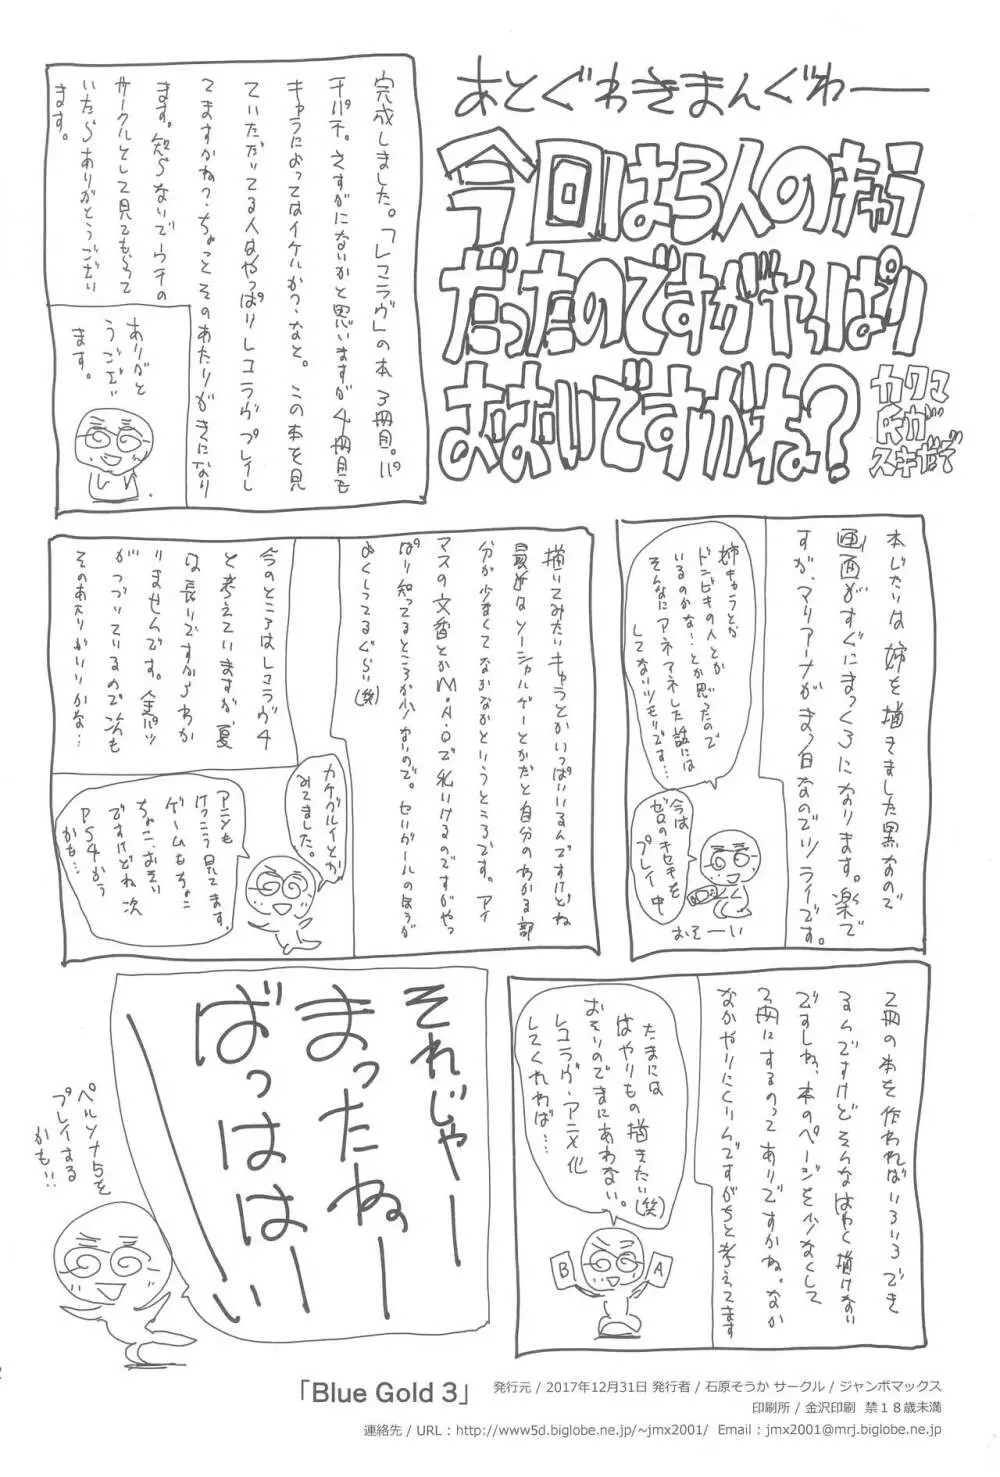 あとぐわきまんぐわー
今回は3人のキャラ
だったのですがやっぱり
おおいですかね?
カワマ
スキだぞ
完成しました。「レコラヴ」の本 3冊目。パ
チパチ。さすがにないかと思いますが4冊目も
キャラによってはイケルか?なと。この本を見
ていただいてる人はやっぱりレコラヴプレイし
てますかね?ちょっとそのあたりがきになり
ます。知らないでウチの
サークルとして見てもらって
いたらありがとうござい
ます。
ありがと
うござい
ます。
本じたいは姉を描きました黒なので
画面がすぐにまっくろになります。楽で
すが、マリアーナがまっ白なのでツライです。
姉キャラとか
ドンビキの人とか
いるのかな…とか思ったので
そんなにアネアネした話には
してないツモリです…
今は
ゼロのキセキを
プレイ中
おそーい
描いてみたいキャラとかいっぱいいるんですけどね
最近なソーシャルゲーとかだと自分のわかる部
分が少なくてなかなかというところです。アイ
マスの文香とかM・A・Oで私いけるのですがやっ
ぱり知ってるところが少ないので。セいがールのほうが
よくしってるぐらい(笑)
今のところはレコラヴ4
と考えていますが、夏
は長いですからわか
りませんです。金パツ
がつづいているので次も
そのあたりがいいかな…
カケグルイとか
みてました。
アニメも
けっこう見てます。
ゲームもちょこ
ちょこ、おそい
ですけどね 次
PS4かう
かも…
2冊の本を作れればいろいろでき
るんですけどそんなはやく描けない
ですしね、本のページを少なくして
2冊にするのってありですかね。なか
なかやりにくいんですがちと考えてます
たまには
はやりもの描きたい(笑)
おそいのでまにあわない。
レコラヴ・アニメ化
してくれれば…
B
A
それじゃー
まったねー
ばっははーい
ペルソナ5を
プレイする
かも!!
「Blue Gold 3」 発行元 / 2017年12月31日 発行者 / 石原そうか サークル / ジャンボマックス
印刷所 / 金沢印刷 禁18歳未満
連絡先 / URL : http://www5d.biglobe.ne.jp/~jmx2001/ Email : jmx2001@mrj.biglobe.ne.jp